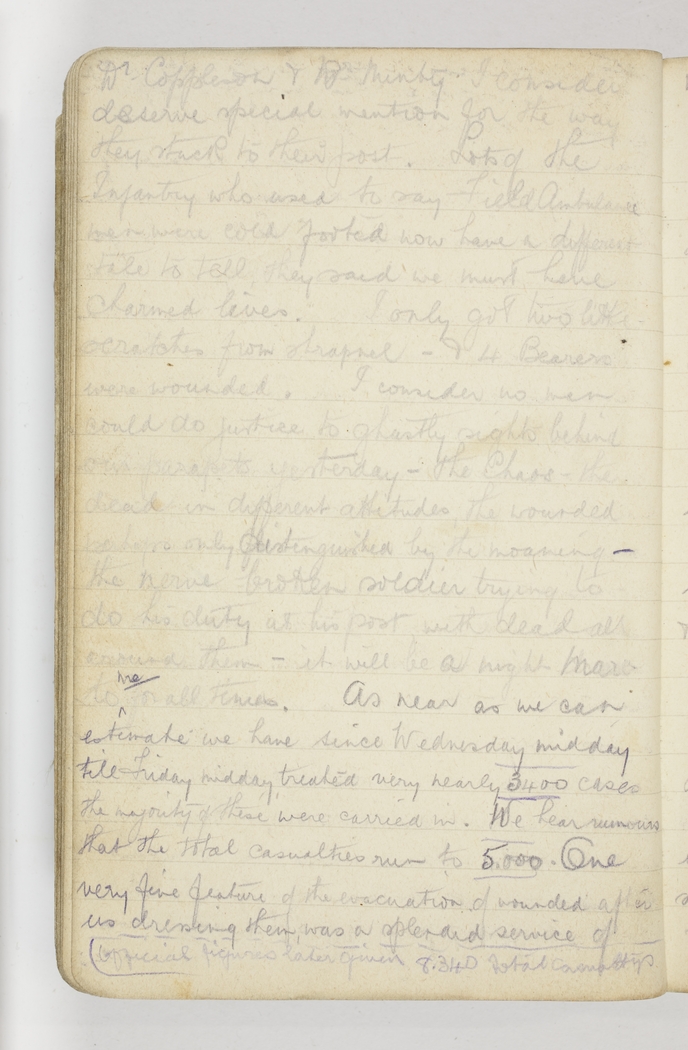 Dr Coppleson & Dr Minty I consider
deserve special mention for the way
they stuck to their post. Lots of the
Infantry who used to say Field Ambulance
men were cold footed now have a different
tale to tell, they said we must have
charmed lives. I only got two little
scratches from shrapnel - & 4 Bearers
were wounded. I consider no man
could do justice to ghastly sights behind
our parapets yesterday - the Chaos - the
dead in different attitudes, the wounded
only distinguished by the moaning -
the nerve broken soldier trying to
do his duty at his post with dead all
around them - it will be a night mare
to me for all times. As near as we can
estimate we have since Wednesday midday
till Friday midday treated very nearly 3400 cases
the majority of these were carried in. We hear rumours
that the total casualties run to 5.000. One
very fine feature of the evacuation of wounded after
us dressing them, was a splendid service of
(official figures later given 8.340 total casualties